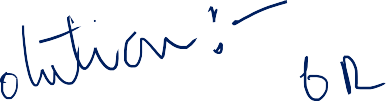 olution :-
6R